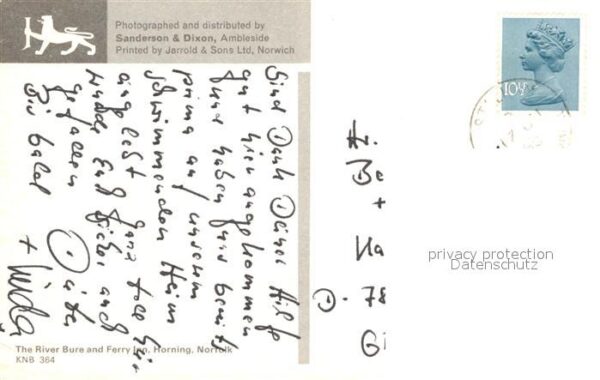 Photographed and distributed by
Sanderson & Dixon, Ambleside
Printed by Jarrold & Sons Ltd, Norwich
Sind Dank Deiner Hilfe
gut hier angekommen
und haben bereits
prima auf unserm
schwimmenden Heim
angelegt. Ganz toll hier
würde Euch sicher auch
gefallen
Bis bald
Dieter
+ Linda
The River Bure and Ferry Inn, Horning, Norfolk
KNB 364
10½P
Fr.
Be
+
Ha
D. 78
Gi
privacy protection
Datenschutz